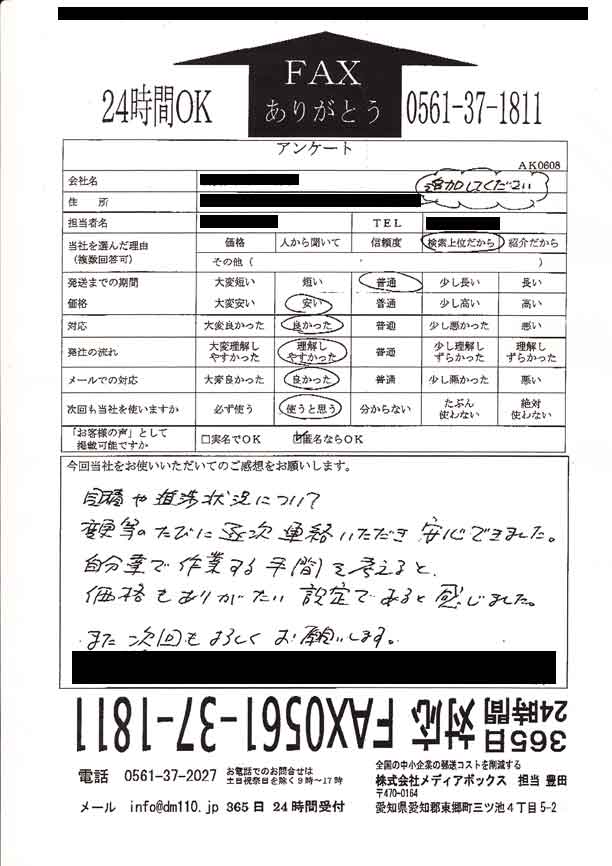 FAX
ありがとう
24時間OK
0561-37-1811
アンケート
AK0608
会社名
追加してください
住 所
担当者名 TEL
当社を選んだ理由 価格 人から聞いて 信頼度 検索上位だから 紹介だから
(複数回答可) その他( )
発送までの期間 大変短い 短い 普通 少し長い 長い
価格 大変安い 安い 普通 少し高い 高い
対応 大変良かった 良かった 普通 少し悪かった 悪い
発注の流れ 大変理解しやすかった 理解しやすかった 普通 少し理解しずらかった 理解しずらかった
メールでの対応 大変良かった 良かった 普通 少し悪かった 悪い
次回も当社を使いますか 必ず使う 使うと思う 分からない たぶん使わない 絶対使わない
「お客様の声」として掲載可能ですか □実名でOK ☑匿名ならOK
今回当社をお使いいただいてのご感想をお願いします。
や進捗状況について
変更等のたびに逐次連絡いただき安心できました。
自分達で作業する手間を考えると、
価格もありがたい設定であると感じました。
また次回もよろしくお願いします。
365日24時間対応 FAX0561-37-1811
電話 0561-37-2027 お電話でのお問合せは土日祝祭日を除く9時~17時
メール info@dm110.jp 365日 24時間受付
全国の中小企業の郵送コストを削減する
株式会社メディアボックス 担当 豊田
〒470-0164
愛知県愛知郡東郷町三ツ池4丁目5-2